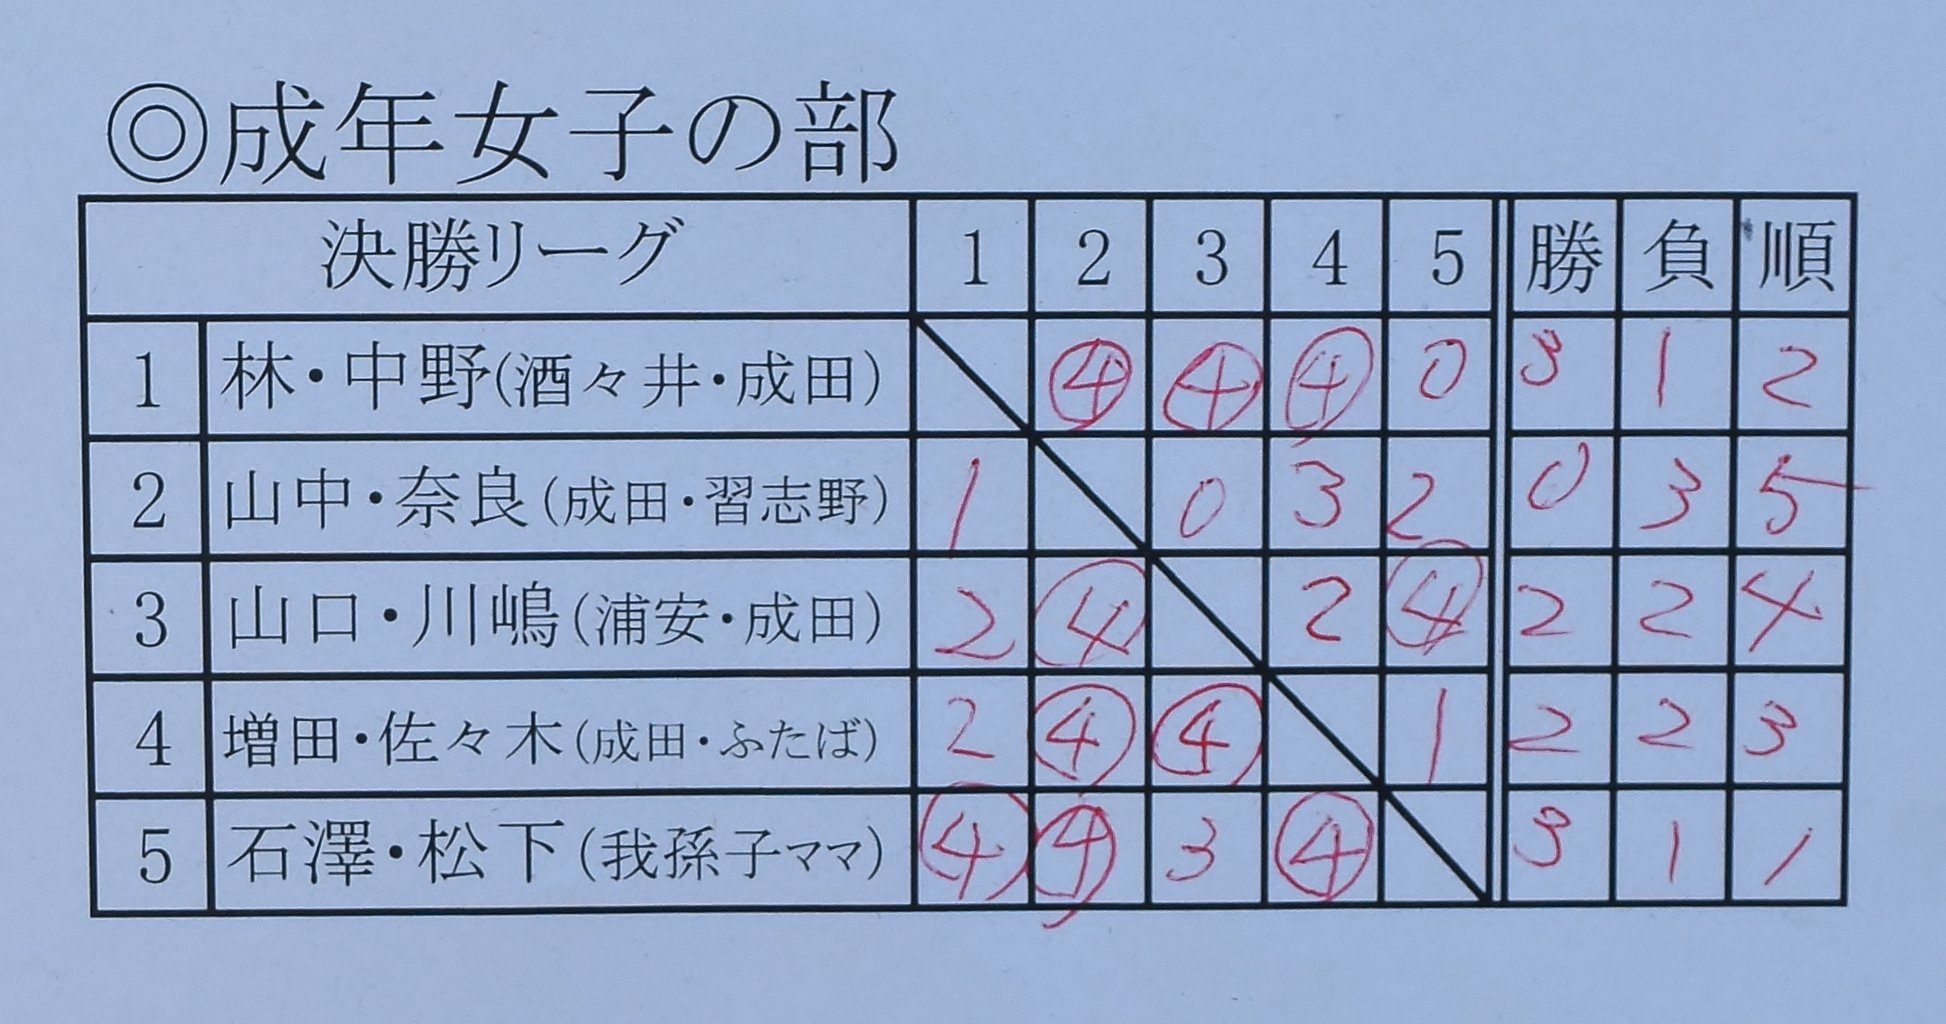 ◎成年女子の部
決勝リーグ 1 2 3 4 5 勝 負 順
1 林・中野(酒々井・成田) ④ ④ ④ 0 3 1 2
2 山中・奈良(成田・習志野) 1 0 3 2 0 3 5
3 山口・川嶋(浦安・成田) 2 ④ 2 ④ 2 2 4
4 増田・佐々木(成田・ふたば) 2 ④ ④ 1 2 2 3
5 石澤・松下(我孫子ママ) ④ ④ 3 ④ 3 1 1